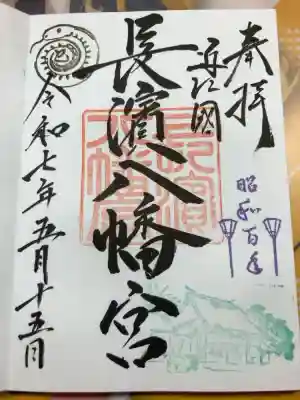 奉拝
昭和百年
近江國
長濱八幡宮
令和七年五月十五日
巳